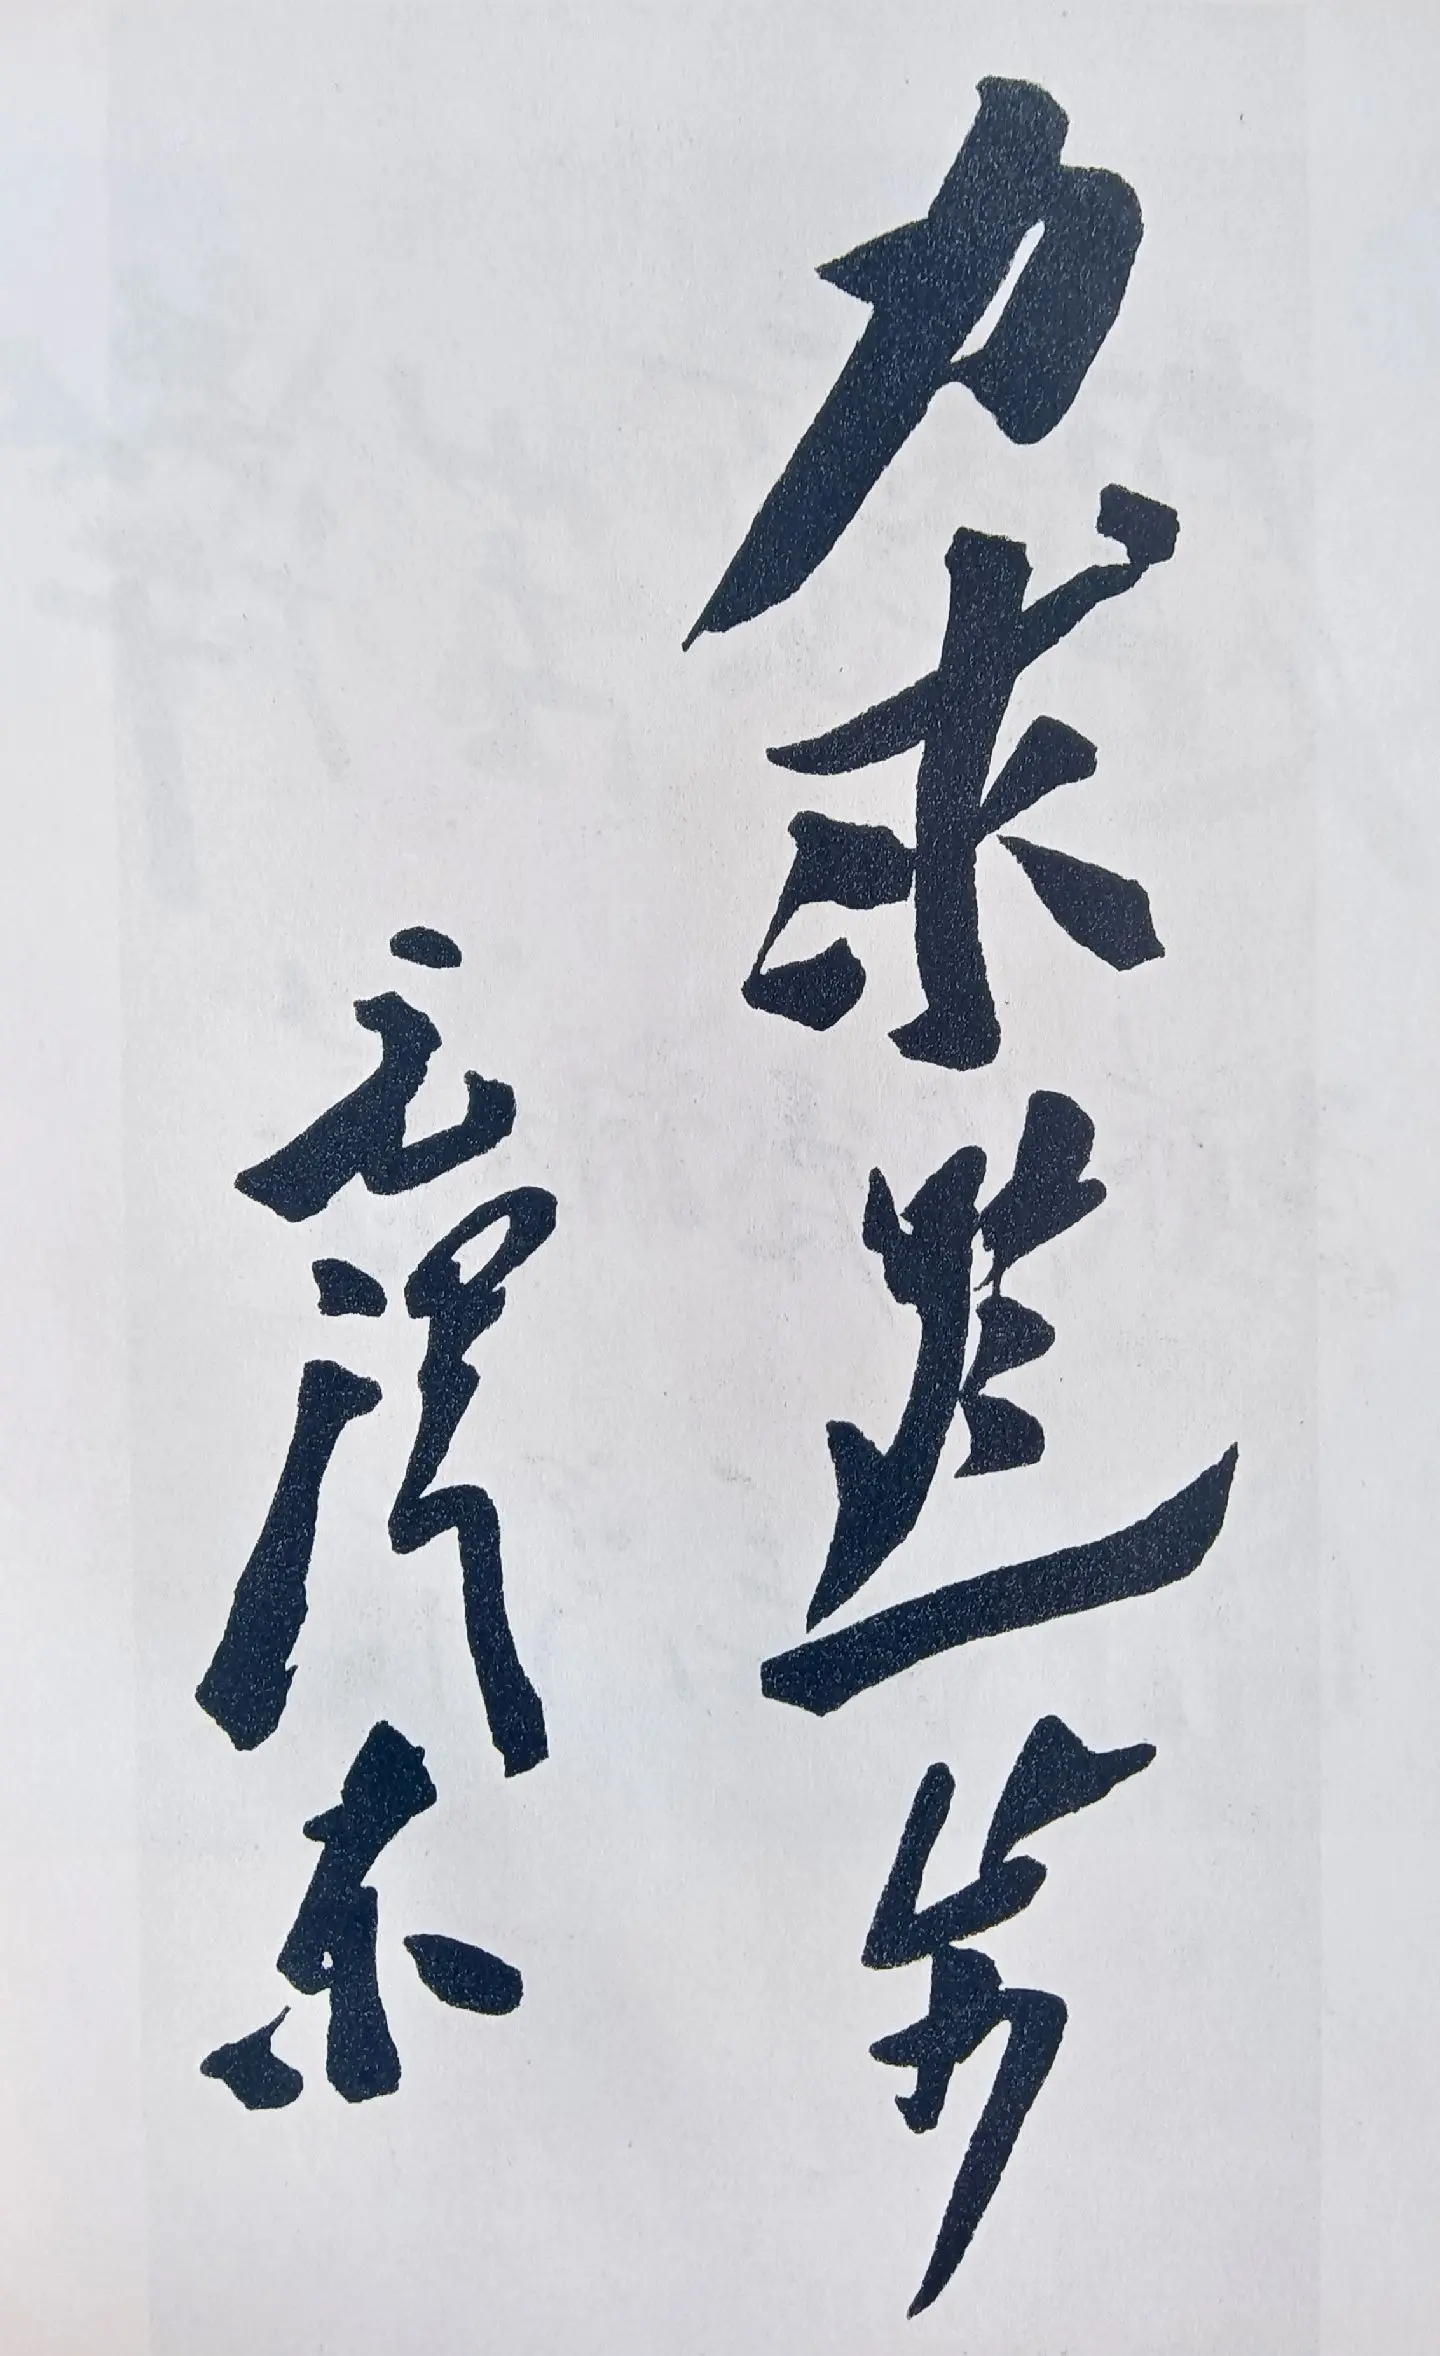 力求進步
毛澤東